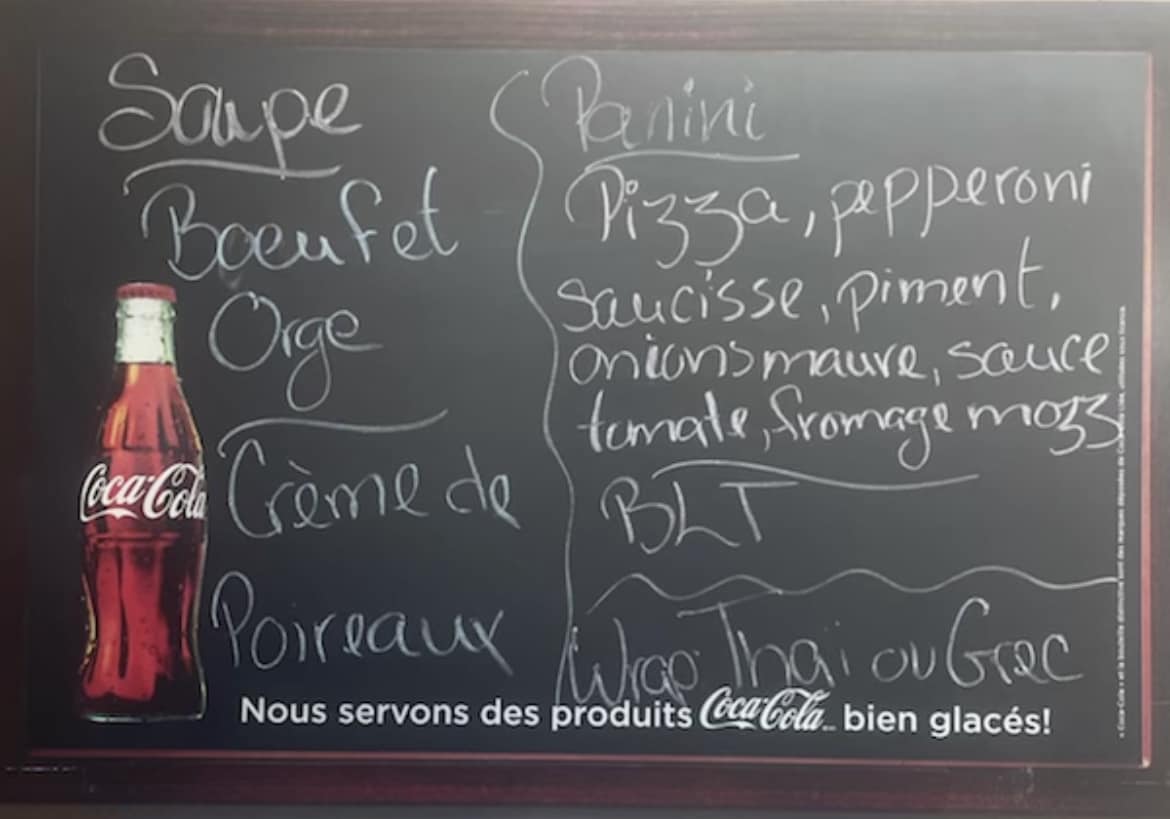 Soupe
Boeuf et
Orge
Crème de
Poireaux
Panini
Pizza, pepperoni
saucisse, piment,
onions mauve, sauce
tomate, fromage mozz
BLT
Wrap Thai ou Grec
Coca-Cola
Nous servons des produits Coca-Cola bien glacés!